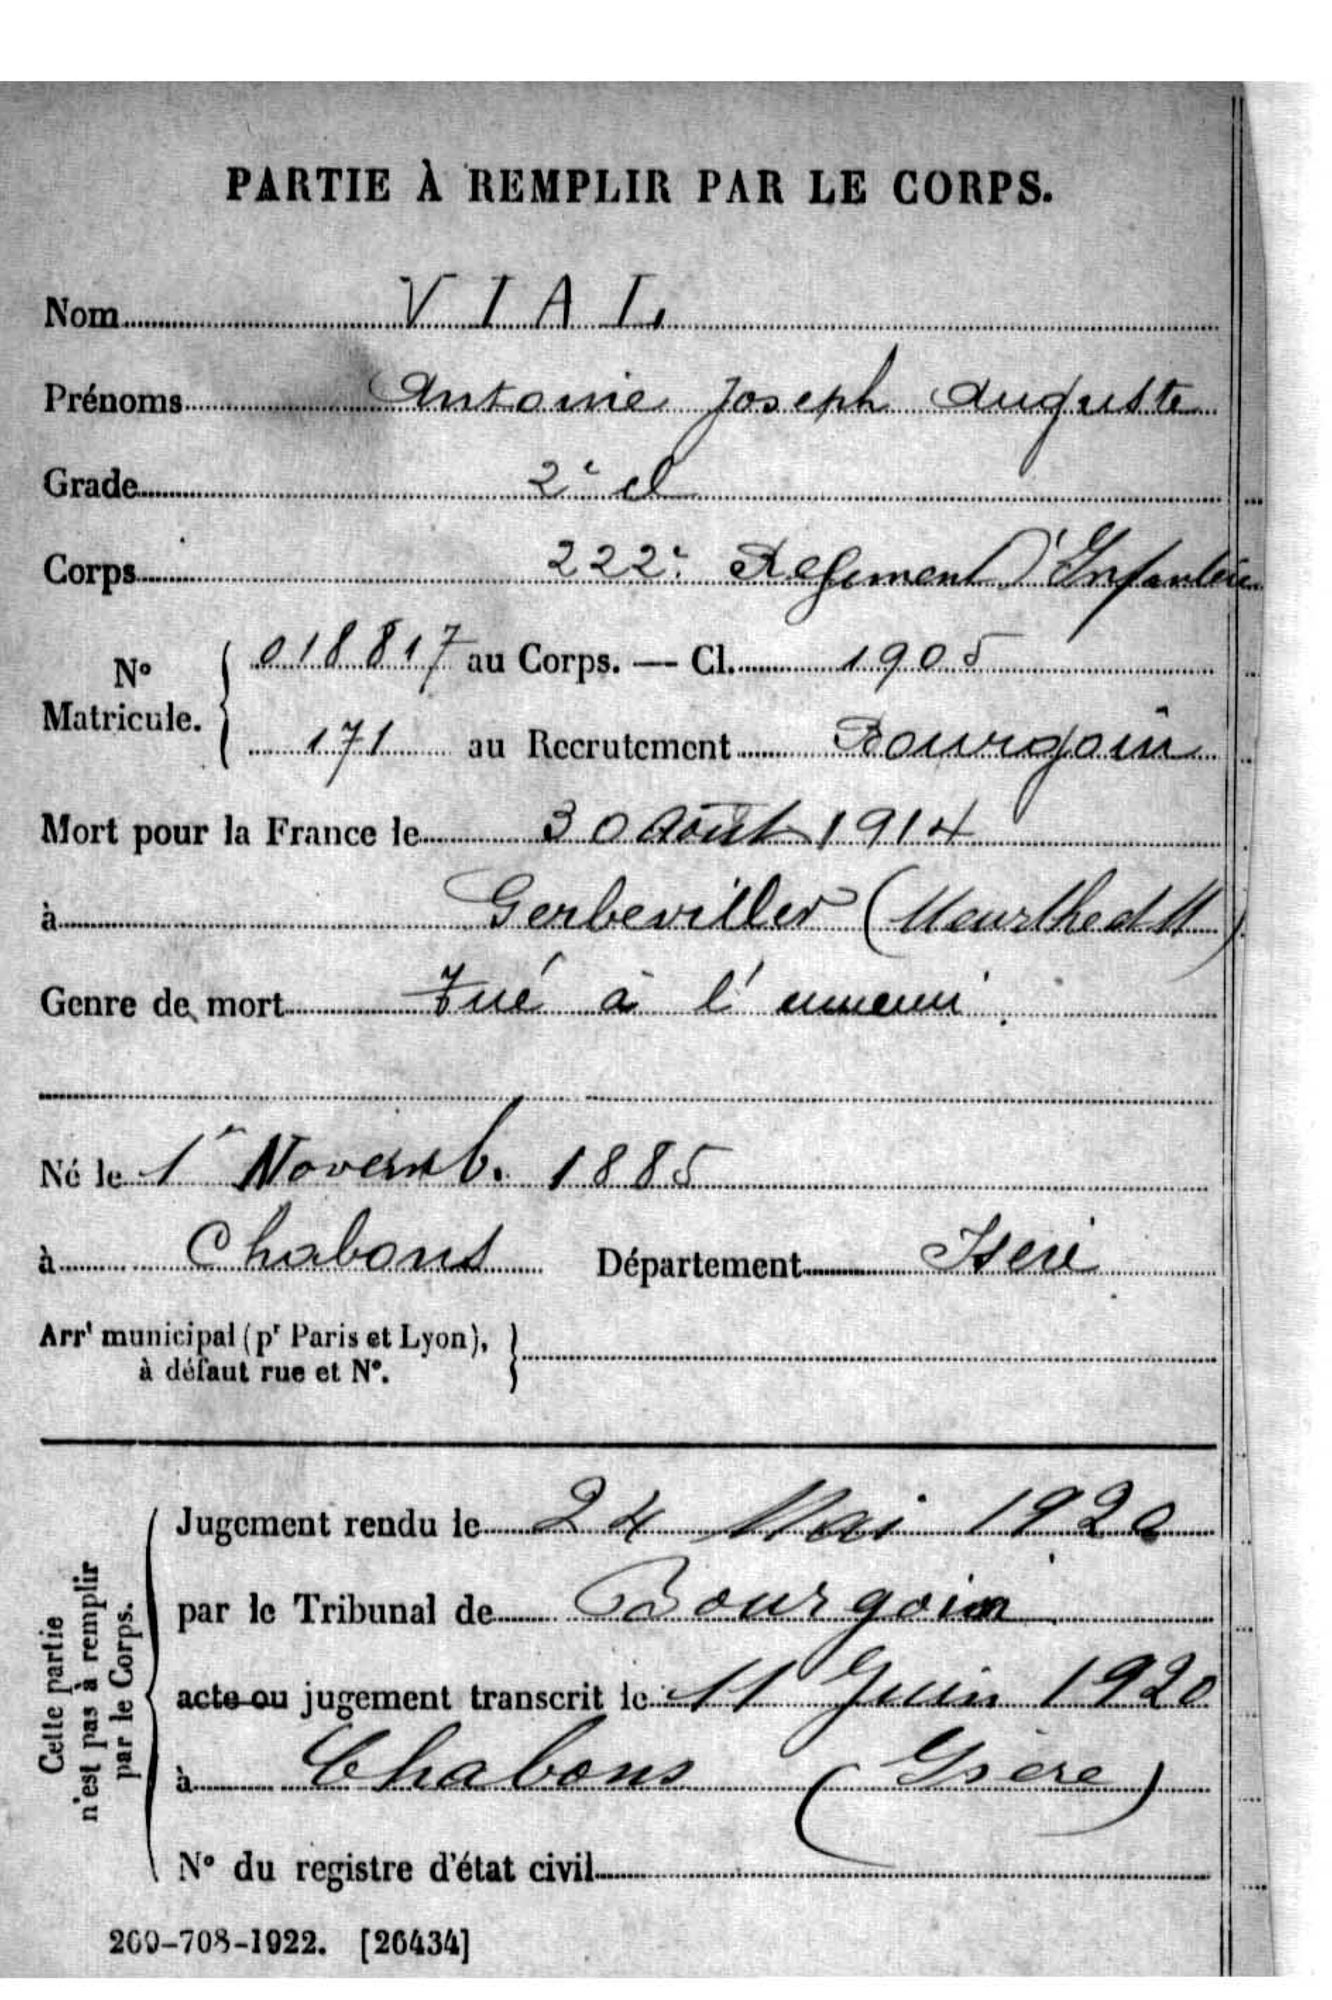 PARTIE À REMPLIR PAR LE CORPS.
Nom VIAL
Prénoms Antoine Joseph Auguste
Grade 2e cl
Corps 222e Regiment d'Infanterie
No Matricule. { 018817 au Corps. — Cl. 1905
171 au Recrutement Bourgoin
Mort pour la France le 30 Août 1914
à Gerbeviller (Meurthe et M)
Genre de mort Tué à l'ennemi
Né le 1er Novemb. 1885
à Chabons Département Isere
Arrt municipal (pr Paris et Lyon),
à défaut rue et No.
Cette partie
n'est pas à remplir
par le Corps.
Jugement rendu le 24 Mai 1920
par le Tribunal de Bourgoin
acte ou jugement transcrit le 11 Juin 1920
à Chabons (Isère)
No du registre d'état civil
269-708-1922. [26434]